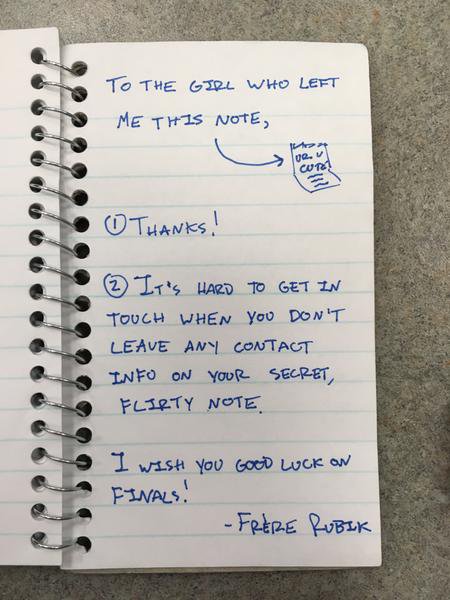 TO THE GIRL WHO LEFT
ME THIS NOTE,
UR U
CUTE
① THANKS!
② IT'S HARD TO GET IN
TOUCH WHEN YOU DON'T
LEAVE ANY CONTACT
INFO ON YOUR SECRET,
FLIRTY NOTE.
I WISH YOU GOOD LUCK ON
FINALS!
-FRÈRE RUBIK